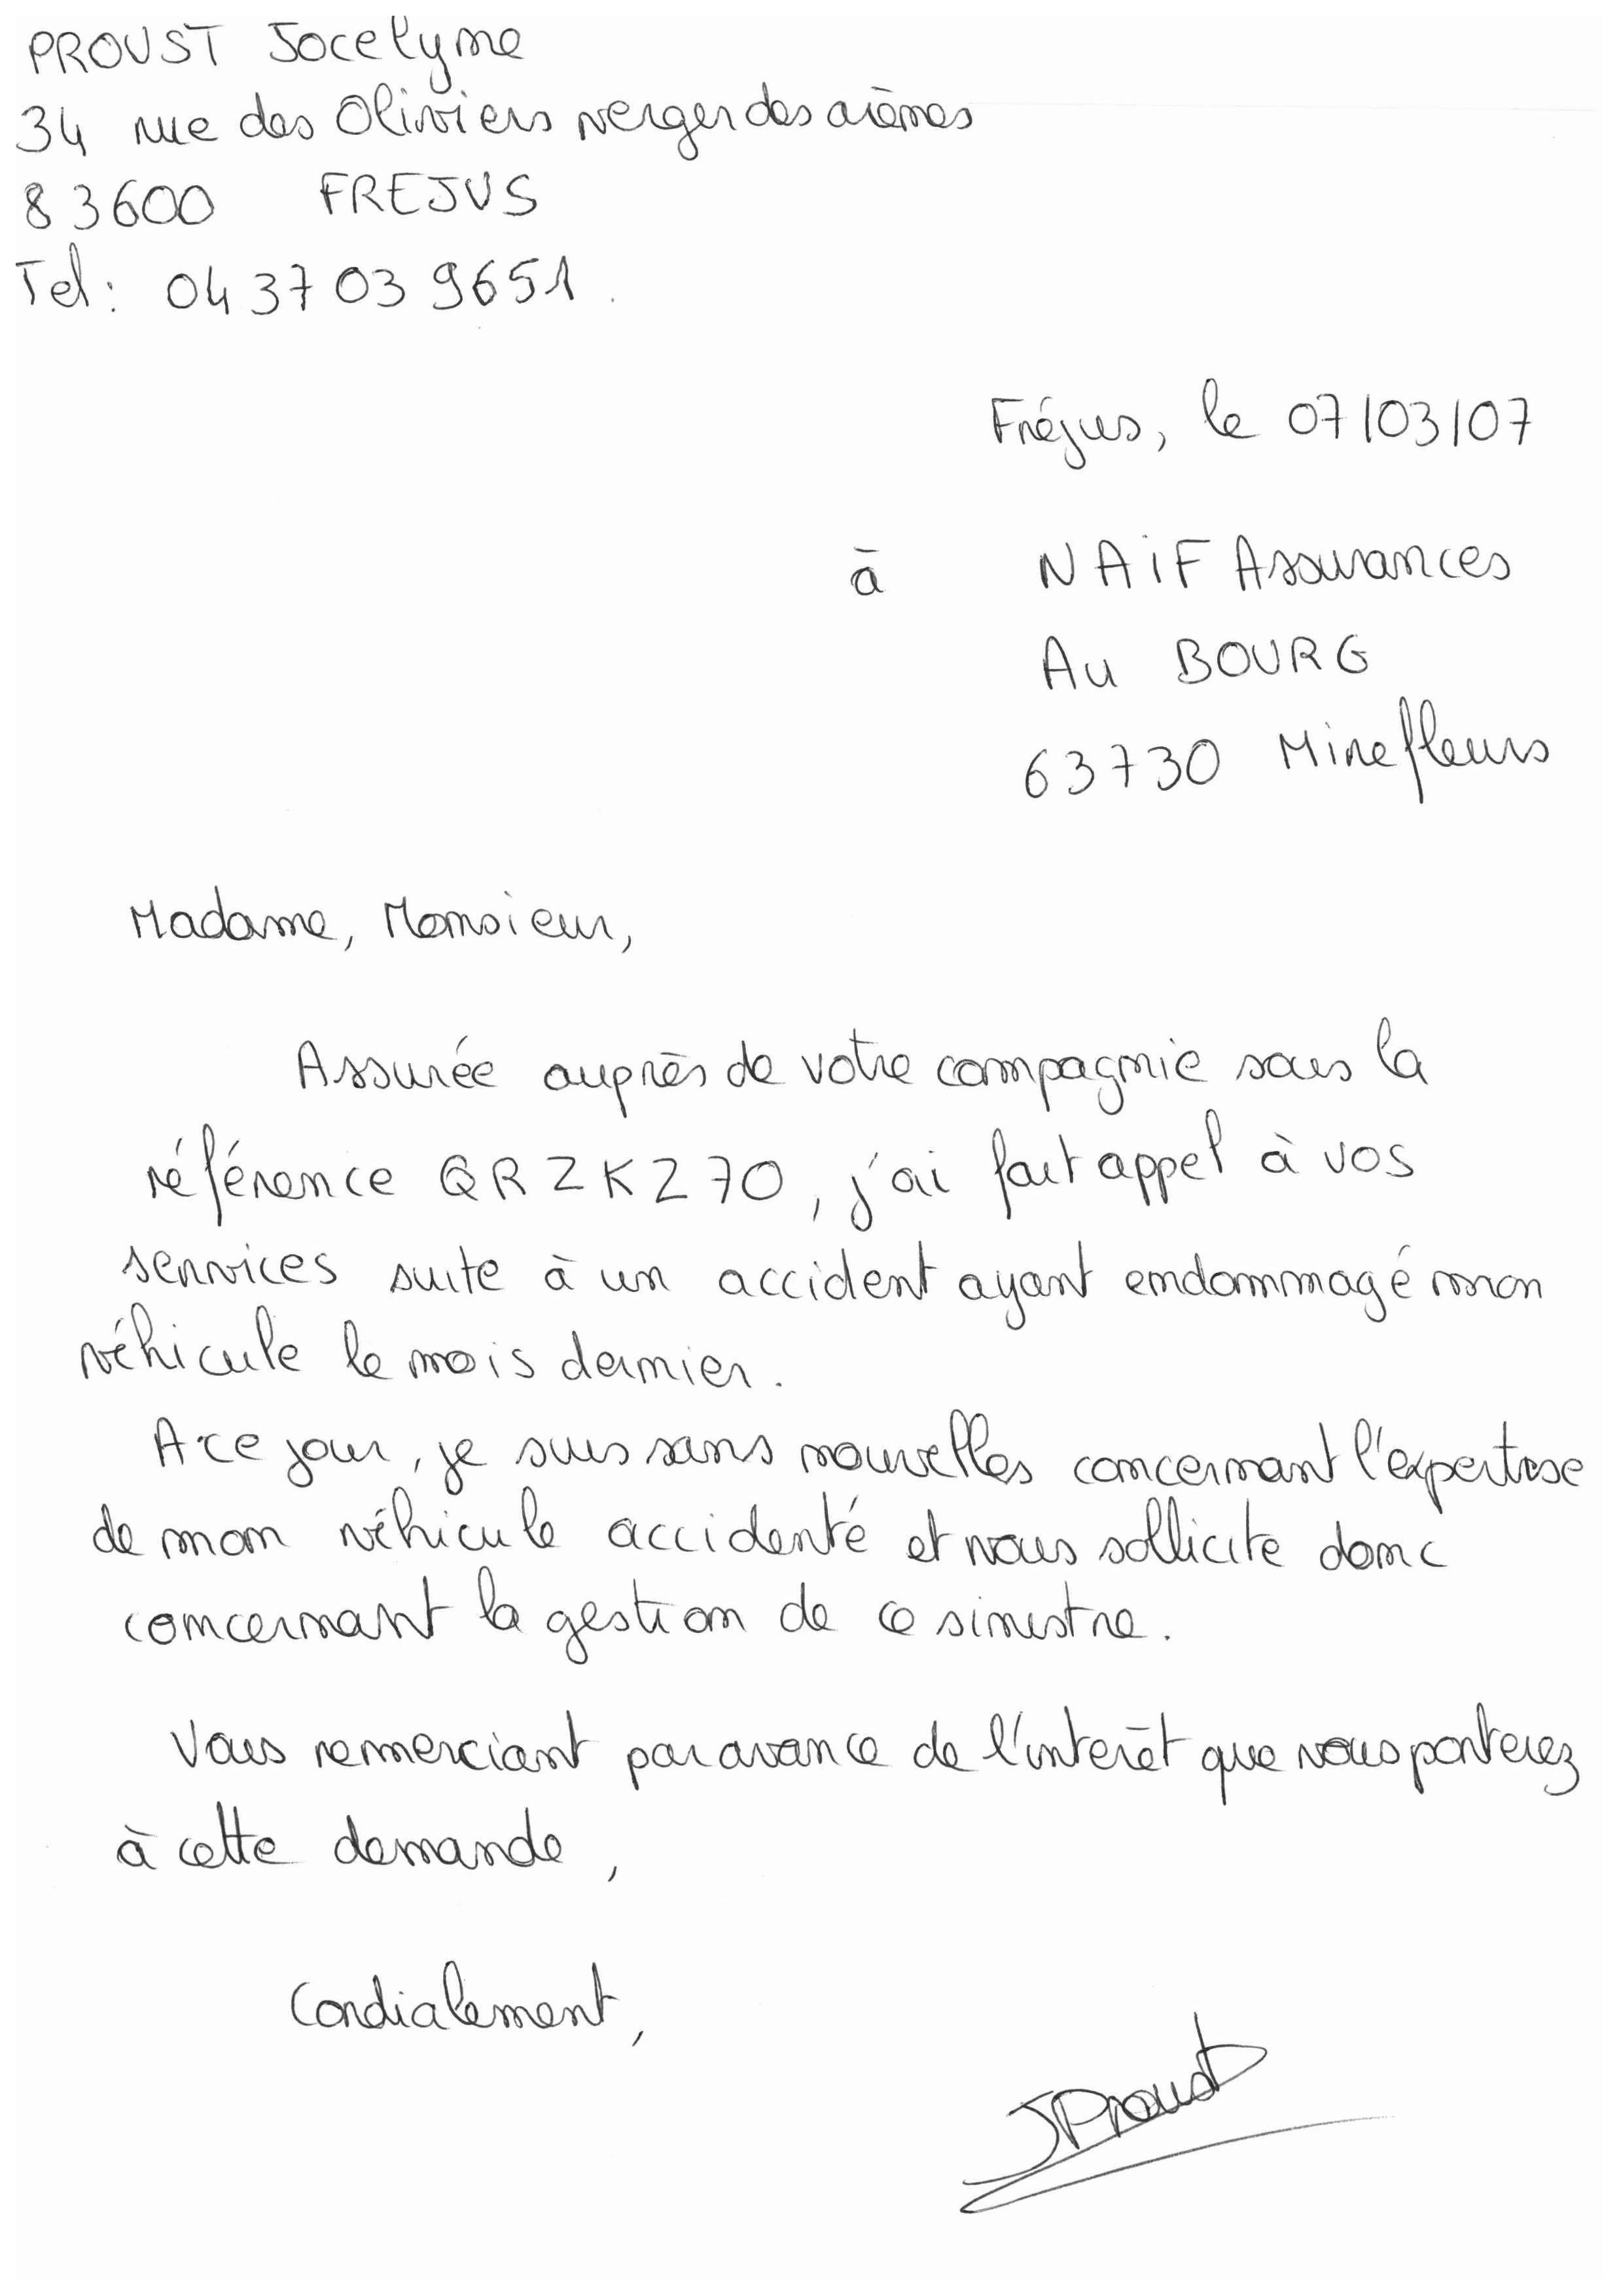 PROUST Jocelyne
34 rue des Oliviers verger des arènes
83600 FREJUS
Tel : 04 37 03 96 51.
Fréjus, le 07/03/07
à NAiF Assurances
Au BOURG
63730 Mirefleurs
Madame, Monsieur,
Assurée auprès de votre compagnie sous la
référence QRZKZ70, j'ai fait appel à vos
services suite à un accident ayant endommagé mon
véhicule le mois dernier.
A ce jour, je suis sans nouvelles concernant l'expertise
de mon véhicule accidenté et vous sollicite donc
concernant la gestion de ce sinistre.
Vous remerciant par avance de l'interêt que vous porterez
à cette demande,
Cordialement,
JProust